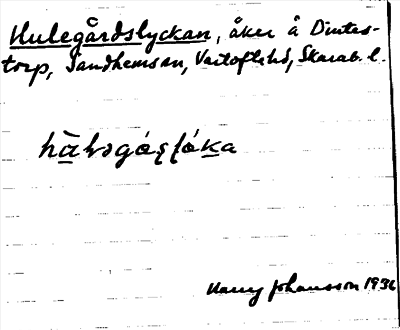 Hulegårdslyckan, åker å Dintes-
torp, Sandhemssn, Vartoftshd, Skarab. l.
Harry Johansson 1936